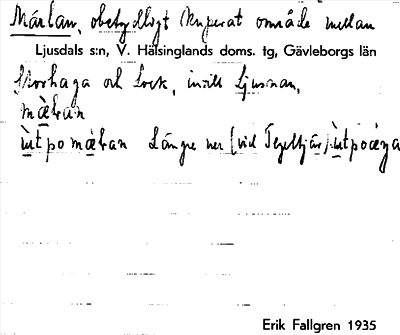 Mårban, obetydligt kuperat område mellan
Ljusdals s:n, V. Hälsinglands doms. tg, Gävleborgs län
Skorhaga och Lock, intill Ljusnan,
mæ̀ban
ùtpo mæ̀ban Längre ner (vid Tegeltjär)
Erik Fallgren 1935